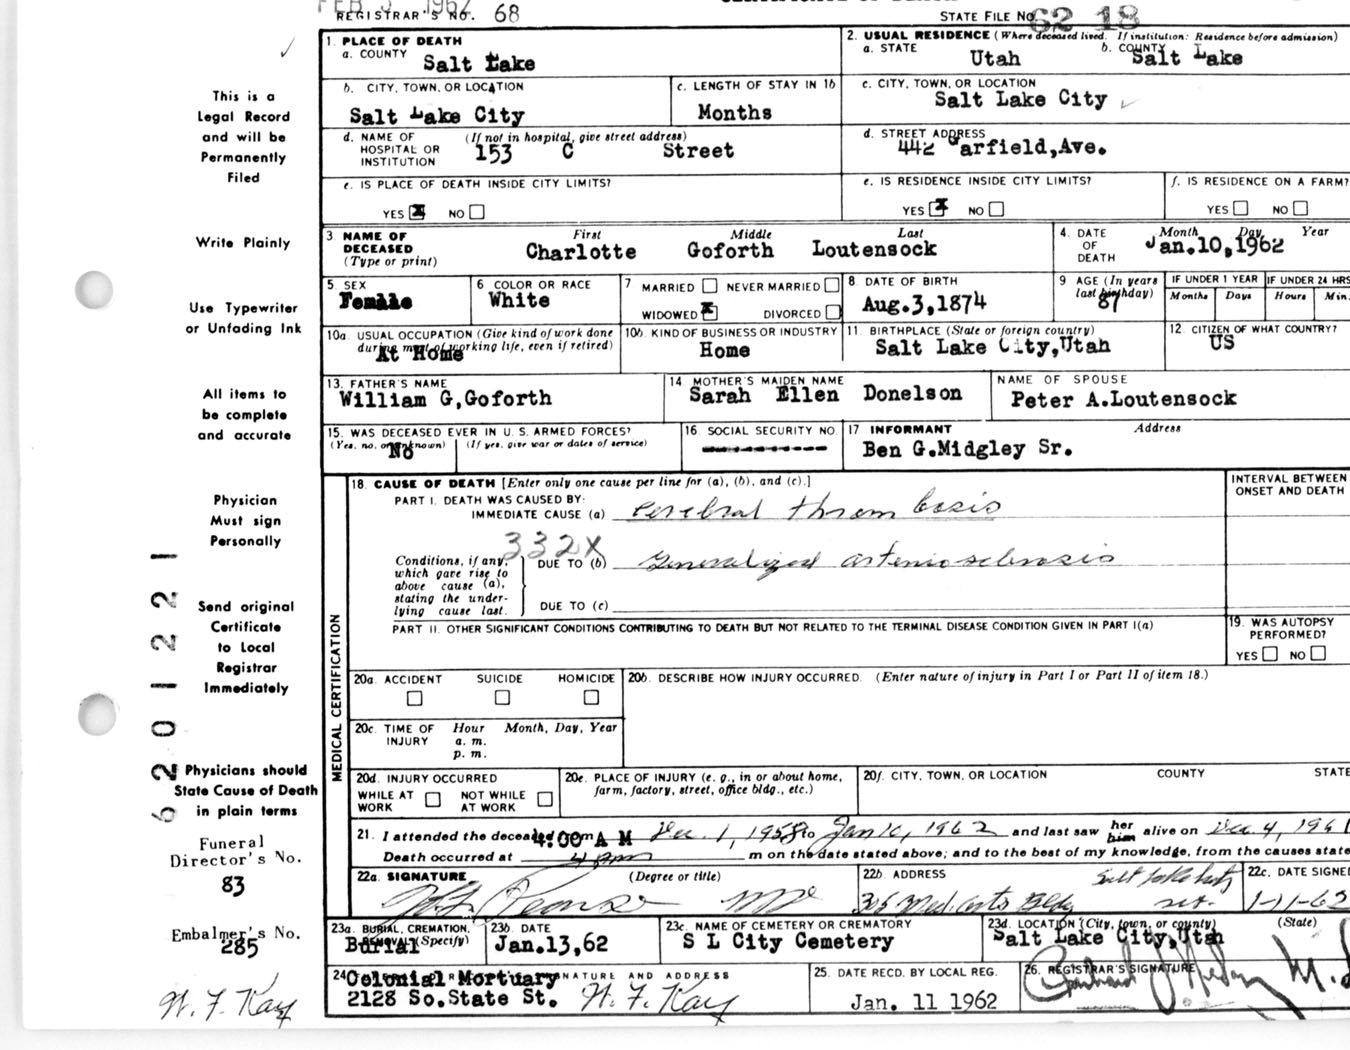 REGISTRAR'S NO. 68
STATE FILE NO. 62 18
1. PLACE OF DEATH
a. COUNTY Salt Lake
2. USUAL RESIDENCE (Where deceased lived. If institution: Residence before admission)
a. STATE Utah b. COUNTY Salt Lake
b. CITY, TOWN, OR LOCATION
Salt Lake City
c. LENGTH OF STAY IN 1b
Months
c. CITY, TOWN, OR LOCATION
Salt Lake City
d. NAME OF HOSPITAL OR INSTITUTION (If not in hospital, give street address)
153 C Street
d. STREET ADDRESS
442 Garfield,Ave.
e. IS PLACE OF DEATH INSIDE CITY LIMITS?
YES X NO
e. IS RESIDENCE INSIDE CITY LIMITS?
YES X NO
f. IS RESIDENCE ON A FARM?
YES NO
3. NAME OF DECEASED (Type or print)
First Middle Last
Charlotte Goforth Loutensock
4. DATE OF DEATH
Month Day Year
Jan.10,1962
5. SEX
Female
6 COLOR OR RACE
White
7 MARRIED NEVER MARRIED
WIDOWED X DIVORCED
8. DATE OF BIRTH
Aug.3,1874
9 AGE (In years last birthday)
87
IF UNDER 1 YEAR
Months Days
IF UNDER 24 HRS
Hours Min.
10a. USUAL OCCUPATION (Give kind of work done during most of working life, even if retired)
At Home
10b. KIND OF BUSINESS OR INDUSTRY
Home
11. BIRTHPLACE (State or foreign country)
Salt Lake City,Utah
12. CITIZEN OF WHAT COUNTRY?
US
13. FATHER'S NAME
William G,Goforth
14 MOTHER'S MAIDEN NAME
Sarah Ellen Donelson
NAME OF SPOUSE
Peter A.Loutensock
15. WAS DECEASED EVER IN U. S. ARMED FORCES?
(Yes, no, or unknown) (If yes, give war or dates of service)
No
16 SOCIAL SECURITY NO.
17 INFORMANT Address
Ben G.Midgley Sr.
18. CAUSE OF DEATH [Enter only one cause per line for (a), (b), and (c).]
INTERVAL BETWEEN ONSET AND DEATH
PART I. DEATH WAS CAUSED BY:
IMMEDIATE CAUSE (a) cerebral thrombosis
332X
Conditions, if any, which gave rise to above cause (a), stating the underlying cause last.
DUE TO (b) Generalized arteriosclerosis
DUE TO (c)
PART II. OTHER SIGNIFICANT CONDITIONS CONTRIBUTING TO DEATH BUT NOT RELATED TO THE TERMINAL DISEASE CONDITION GIVEN IN PART I(a)
19. WAS AUTOPSY PERFORMED?
YES NO
MEDICAL CERTIFICATION
20a. ACCIDENT SUICIDE HOMICIDE
20b. DESCRIBE HOW INJURY OCCURRED. (Enter nature of injury in Part I or Part II of item 18.)
20c. TIME OF INJURY
Hour Month, Day, Year
a. m.
p. m.
20d. INJURY OCCURRED
WHILE AT WORK NOT WHILE AT WORK
20e. PLACE OF INJURY (e. g., in or about home, farm, factory, street, office bldg., etc.)
20f. CITY, TOWN, OR LOCATION COUNTY STATE
21. I attended the deceased from Dec. 1, 1958 to Jan 10, 1962 and last saw her him alive on Dec. 4, 1961
4:00 A M
Death occurred at 4 am m on the date stated above; and to the best of my knowledge, from the causes state
22a. SIGNATURE (Degree or title)
MD
22b. ADDRESS
Salt Lake City
Med. Arts Bldg
22c. DATE SIGNE
1-11-62
23a. BURIAL, CREMATION, REMOVAL (Specify)
Burial
23b. DATE
Jan.13,62
23c. NAME OF CEMETERY OR CREMATORY
S L City Cemetery
23d. LOCATION (City, town, or county) (State)
Salt Lake City,Utah
24 SIGNATURE AND ADDRESS
Colonial Mortuary
2128 So.State St. W. F. Kay
25. DATE RECD. BY LOCAL REG.
Jan. 11 1962
26. REGISTRAR'S SIGNATURE
This is a
Legal Record
and will be
Permanently
Filed
Write Plainly
Use Typewriter
or Unfading Ink
All items to
be complete
and accurate
Physician
Must sign
Personally
Send original
Certificate
to Local
Registrar
Immediately
Physicians should
State Cause of Death
in plain terms
62 01 221
Funeral
Director's No.
83
Embalmer's No.
285
W. F. Kay